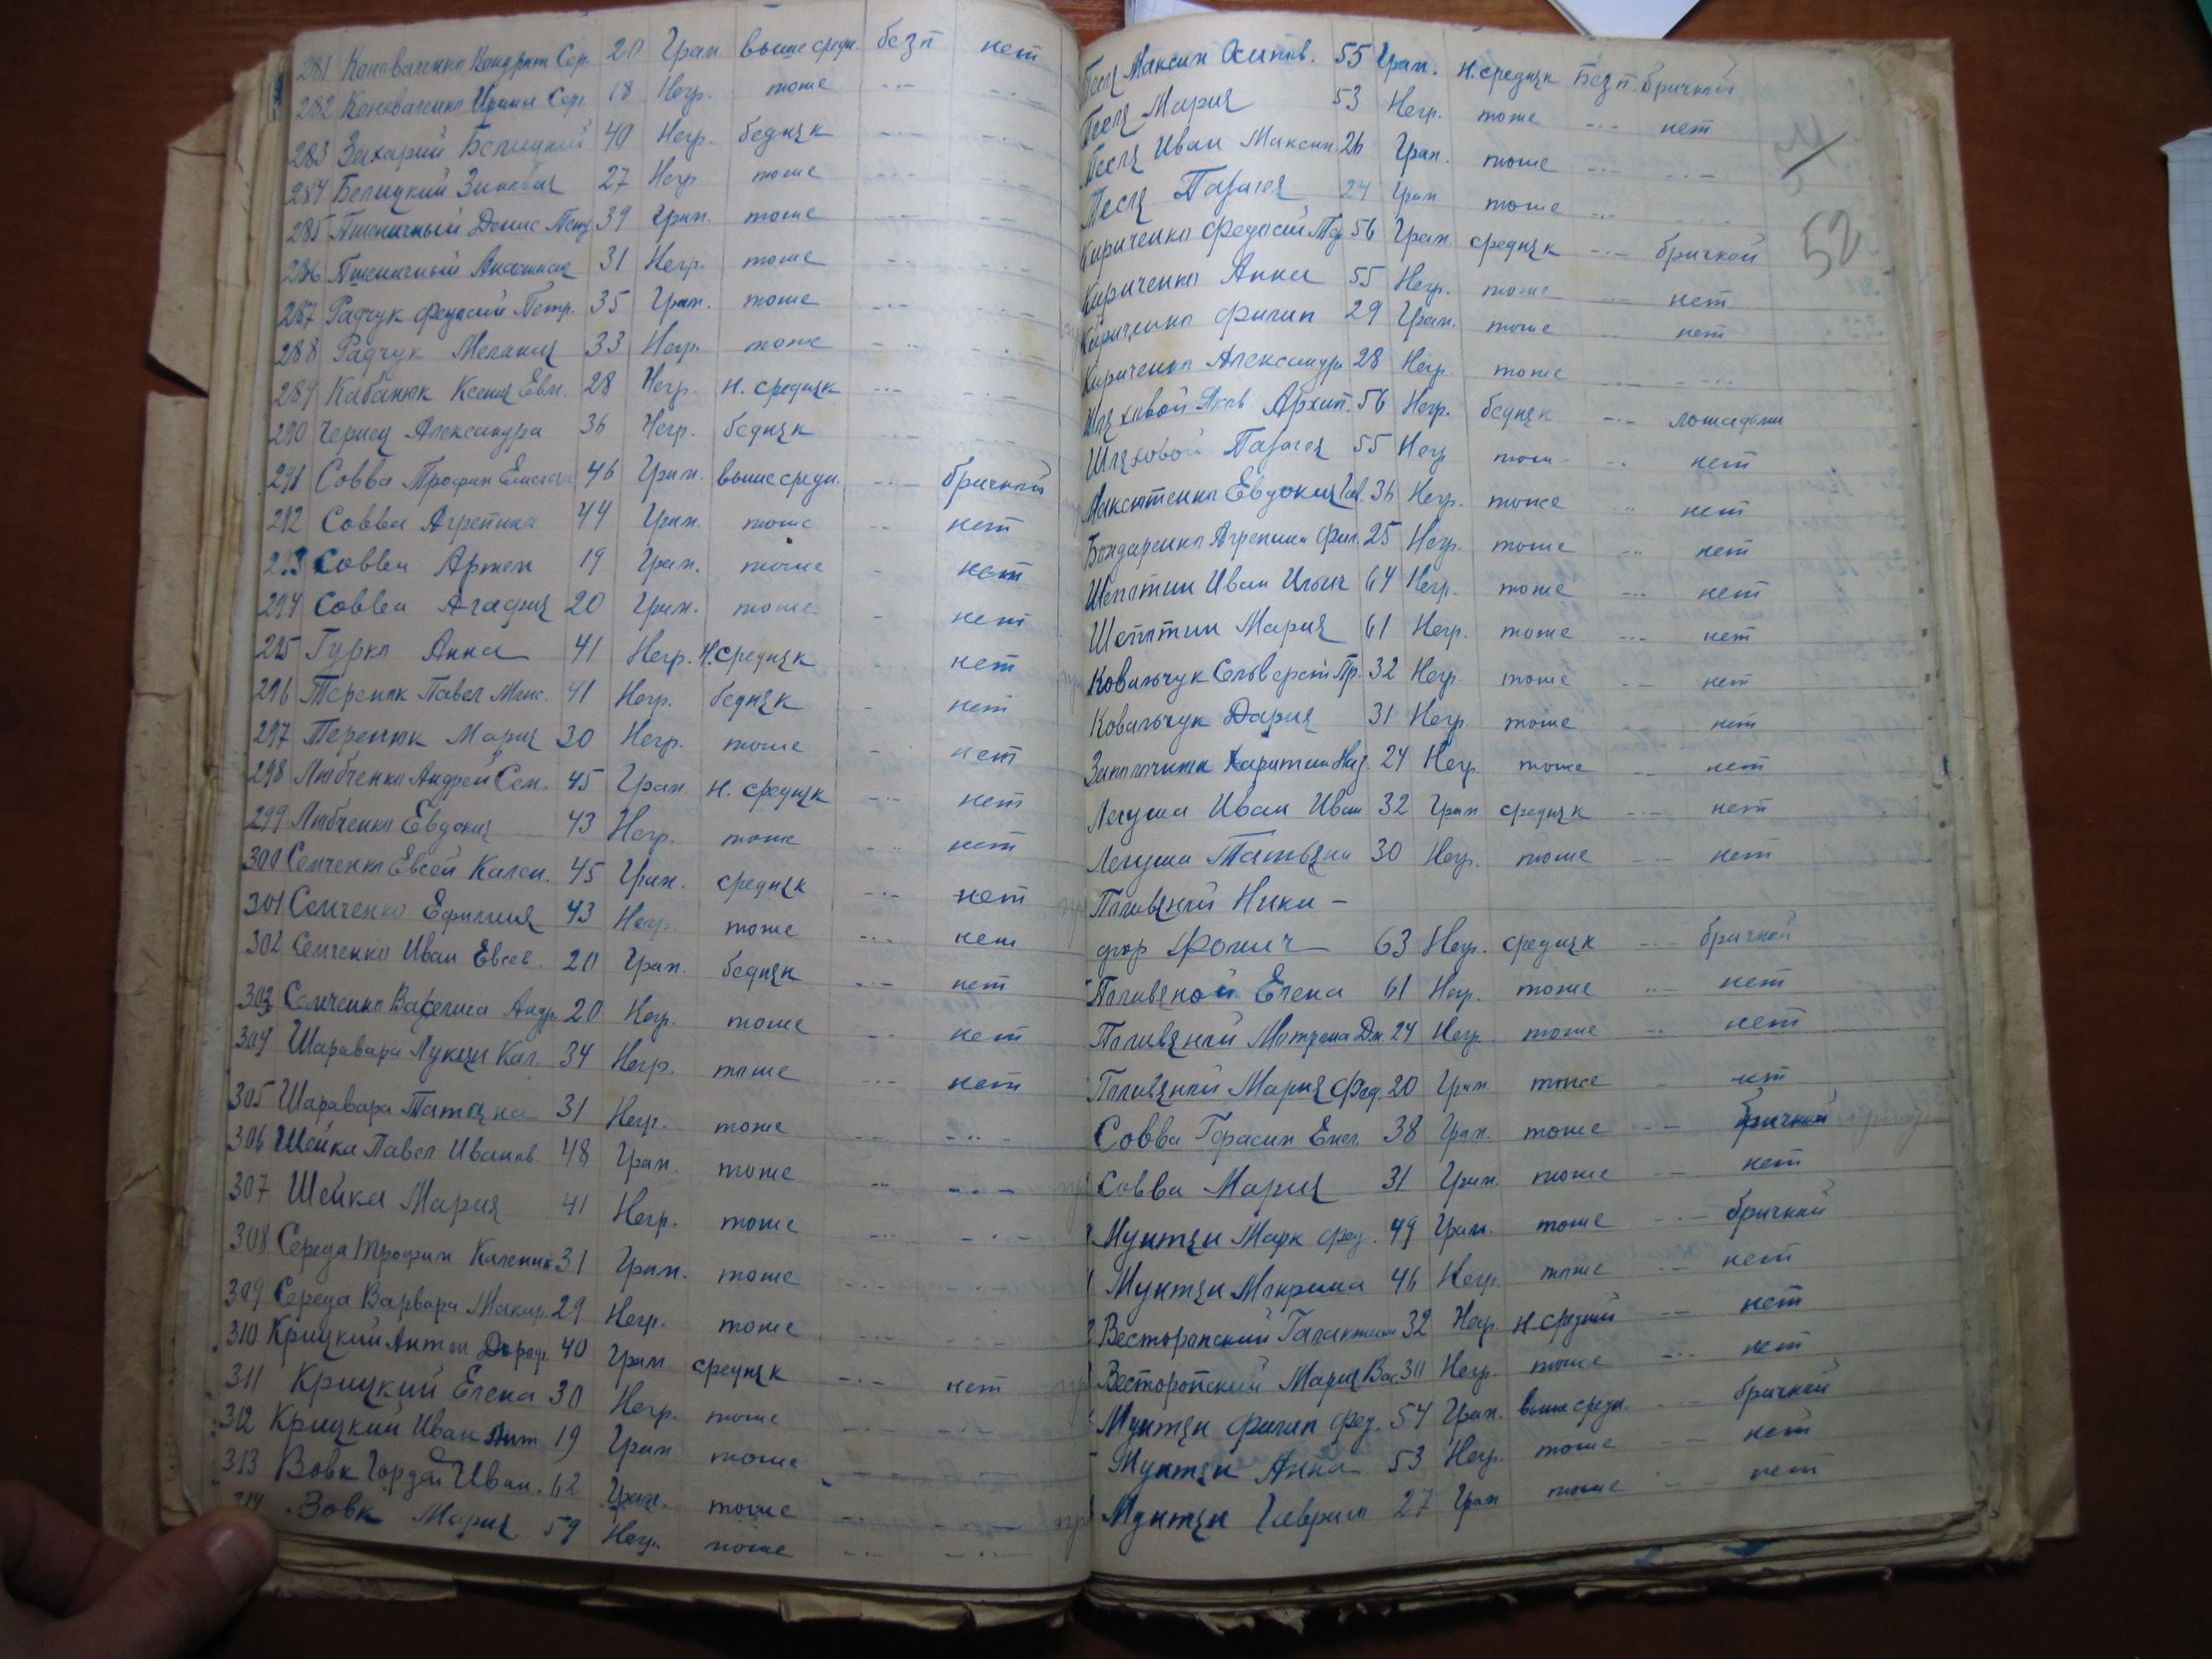 281 Коноваленко Кондрат Сер. 20 Грам. выше средн. безп нет
282 Коноваленко Ирина Сер. 18 Негр. тоже -.- -.-
283 Захарий Белицкий 40 Негр. бедняк -.- -.-
284 Белицкий Зиновия 27 Негр. тоже -.- -.-
285 Пшеничный Денис Петр 39 Грам. тоже -.- -.-
286 Пшеничный Анастасия 31 Негр. тоже -.- -.-
287 Радчук Федосий Петр. 35 Грам. тоже -.- -.-
288 Радчук Мелания 33 Негр. тоже -.. -..-
289 Кабанюк Ксения Евм. 28 Негр. н. средняк -.- -.-
290 Чернец Александра 36 Негр. бедняк -.- -.-
291 Совва Трофим 46 Грам. выше средн. -.- бричкой
292 Совва Агрепина 44 Грам. тоже -.- нет
293 Совва Артем 19 Грам. тоже - нет
294 Совва Агафия 20 Грам. тоже - нет
295 Гурко Анна 41 Негр. Н. средняк нет
296 Теренюк Павел 41 Негр. бедняк - нет
297 Теренюк Мария 30 Негр. тоже - нет
298 Любченко Андрей Сем. 45 Грам. н. средняк -.- нет
299 Любченко Евдокия 43 Негр. тоже -.. нет
300 Семченко Евсей Калин. 45 Грам. средняк -.- нет
301 Семченко Ефимия 43 Негр. тоже -.- нет
302 Семченко Иван Евсев. 20 Грам. бедняк -.- нет
303 Семченко Василиса Андр 20 Негр. тоже -.- нет
304 Шаравара Лукян Кал. 34 Негр. тоже -.- нет
305 Шаравара Татяна 31 Негр. тоже -.- -..-
306 Шейка Павел Иванов. 48 Грам. тоже -.. -.-
307 Шейка Мария 41 Негр. тоже -.- -.-
308 Середа Трофим Каленик 31 Грам. тоже -.- -.-
309 Середа Варвара Макар. 29 Негр. тоже -.- -.-
310 Крицкий Антон 40 Грам. средняк -.- нет
311 Крицкий Елена 30 Негр. тоже -.- -.-
312 Крицкий Иван Ант. 19 Грам тоже -.- -.-
313 Вовк Гордей Иван. 62 Грам. тоже -.- -.-
314 Вовк Мария 59 Негр. тоже -.- -.-
Песля Максим Осипов. 55 Грам. Н. средняк Безп. бричкой
Песля Мария 53 Негр. тоже -.- нет
Песля Иван Максим. 26 Грам. тоже -.- -.-
Песля Парасся 24 Грам. тоже -.- -.-
52
Кириченко Федосий 56 Грам. средняк -.- бричкой
Кириченко Анна 55 Негр. тоже -.- нет
Кириченко Филип 29 Грам. тоже нет
Кириченко Александра 28 Негр. тоже -.- -.-
Шляховой Яков Архип. 56 Негр. бедняк -.- лошадьми
Шляховой Парасся 55 Негр тоже -.. нет
Максютенко Евдокия 36 Негр. тоже -.. нет
Бондаренко Агрепина Фил. 25 Негр. тоже -.. нет
Шепотин Иван Ильич 64 Негр. тоже -.- нет
Шепотин Мария 61 Негр. тоже -.- нет
Ковальчук Сельверст Пр. 32 Негр. тоже -.- нет
Ковальчук Дария 31 Негр тоже -.- нет
Харитин 24 Негр. тоже -.- нет
Легуша Иван Иван 32 Грам. средняк -.- нет
Легуша Татьяна 30 Негр. тоже -.- нет
Паливяный Ники-
фор Фомич 63 Негр. средняк -.- бричкой
Паливяной Елена 61 Негр. тоже -.- нет
Паливяный Мотрена Дм. 24 Негр. тоже -.. нет
Паливяный Мария Фед. 20 Грам. тоже - нет
Совва Герасим Емел. 38 Грам. тоже -.- бричкой
Совва Мария 31 Грам. тоже -.- нет
Мунтян Марк Фед. 49 Грам. тоже -.- бричкой
Мунтян Мокрина 46 Негр. тоже -.- нет
Весторопский Галактион 32 Негр. н. средний -.- нет
Весторопский Мария Вас. 30 Негр. тоже -.- нет
Мунтян Филип Фед. 54 Грам. выше средн. -.- бричкой
Мунтян Анна 53 Негр. тоже -.- нет
Мунтян Гаврил 27 Грам тоже -.- нет